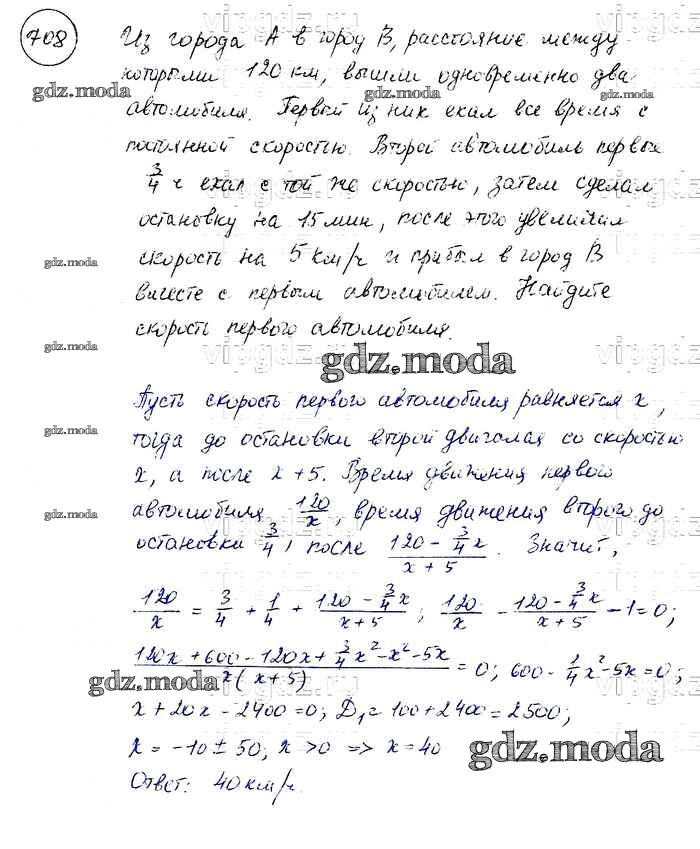 708
Из города А в город В, расстояние между
которыми 120 км, вышли одновременно два
автомобиля. Первый из них ехал все время с
постоянной скоростью. Второй автомобиль первые
3/4 ч ехал с той же скоростью, затем сделал
остановку на 15 мин, после этого увеличил
скорость на 5 км/ч и прибыл в город В
вместе с первым автомобилем. Найдите
скорость первого автомобиля.
gdz.moda
Пусть скорость первого автомобиля равняется x,
тогда до остановки второй двигался со скоростью
x, а после x+5. Время движения первого
автомобиля 120/x, время движения второго до
остановки 3/4, после (120 - 3/4 x)/(x+5). Значит,
120/x = 3/4 + 1/4 + (120 - 3/4 x)/(x+5); 120/x - (120 - 3/4 x)/(x+5) - 1 = 0;
(120x + 600 - 120x + 3/4 x² - x² - 5x)/(x(x+5)) = 0; 600 - 1/4 x² - 5x = 0;
x + 20x - 2400 = 0; D₁ = 100 + 2400 = 2500;
x = -10 ± 50; x > 0 => x = 40
Ответ: 40 км/ч.
gdz.moda
gdz.moda